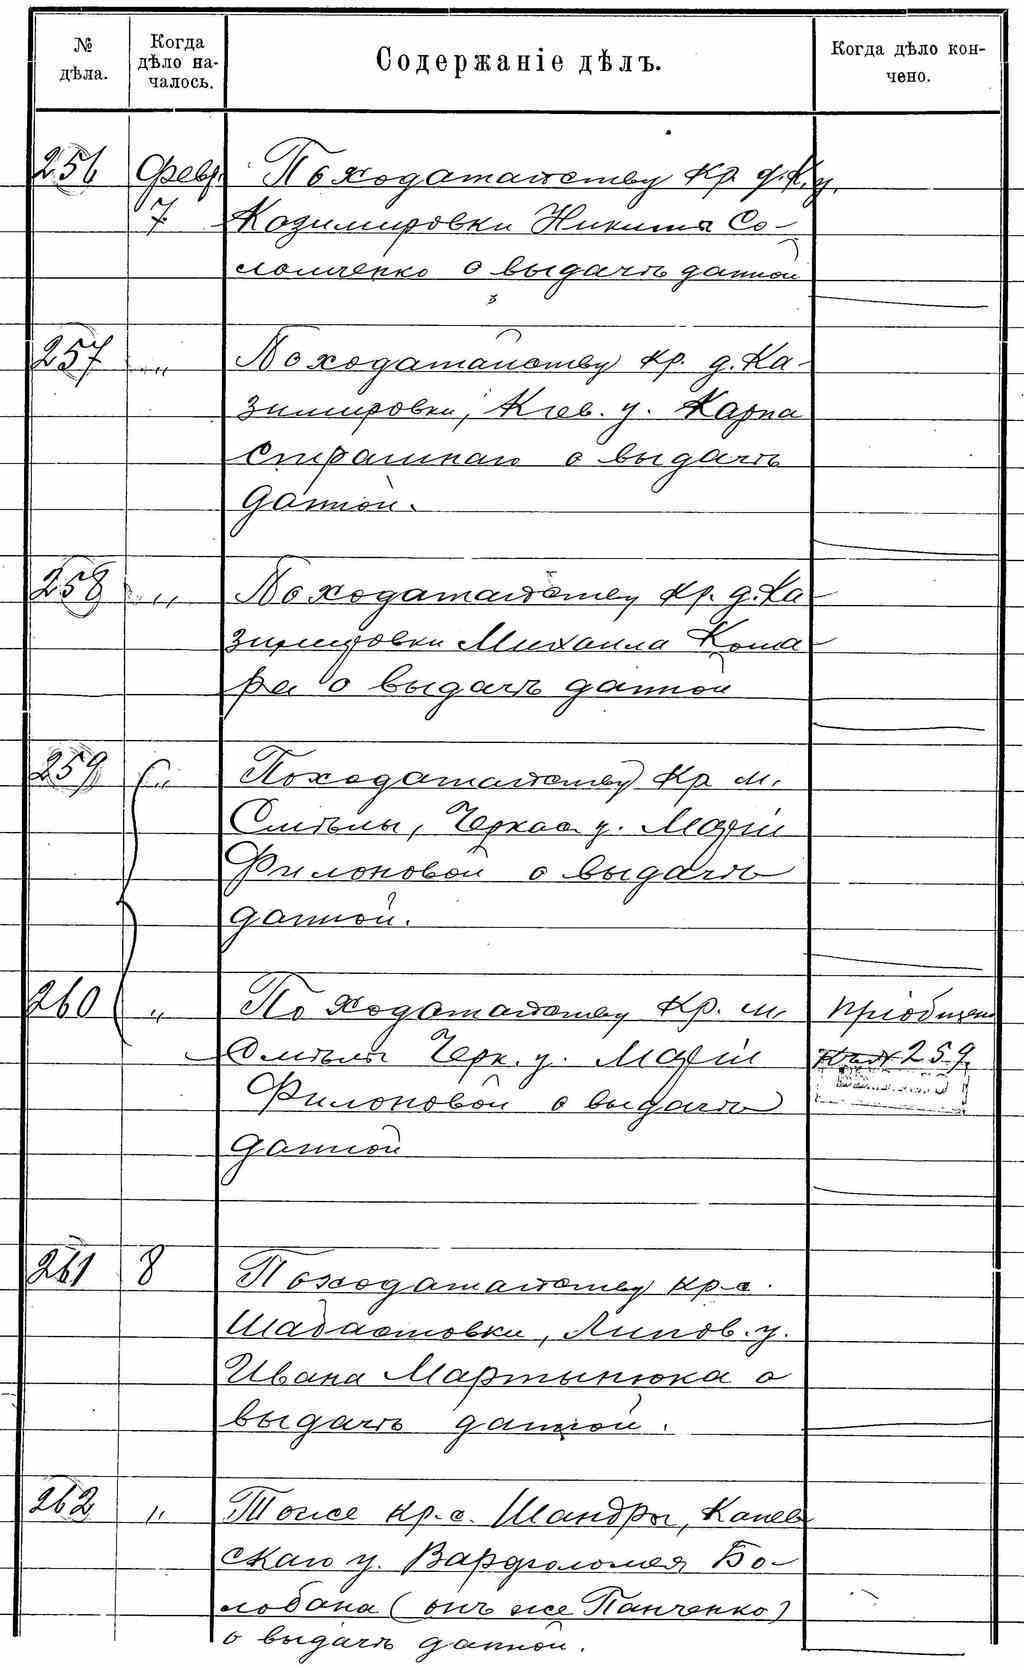 № дѣла.
Когда дѣло началось.
Содержаніе дѣлъ.
Когда дѣло кончено.
256 Февр. По ходатайству кр. д. К. у.
7 Казимировки Никиты Со-
ломченко о выдачѣ данной
257 „ По ходатайству кр. д. Ка-
зимировки, Кіев. у. Карпа
Страшнаго о выдачѣ
данной.
258 „ По ходатайству кр. д. Ка-
зимировки Михаила Кома-
ра о выдачѣ данной
259 „ По ходатайству кр м.
Смѣлы, Черкас. у. Маріи
Филоновой о выдачѣ
данной.
260 „ По ходатайству кр. м. пріобщено
Смѣлы Черк. у. Маріи 259.
Филоновой о выдачѣ
данной
261 8 По ходатайству кр-с.
Шабастовки, Липов. у.
Ивана Мартынюка о
выдачѣ данной.
262 „ Тоже кр. с. Шандры, Канев
скаго у. Варфоломея Бо-
лобана (онъ же Панченко)
о выдачѣ данной.